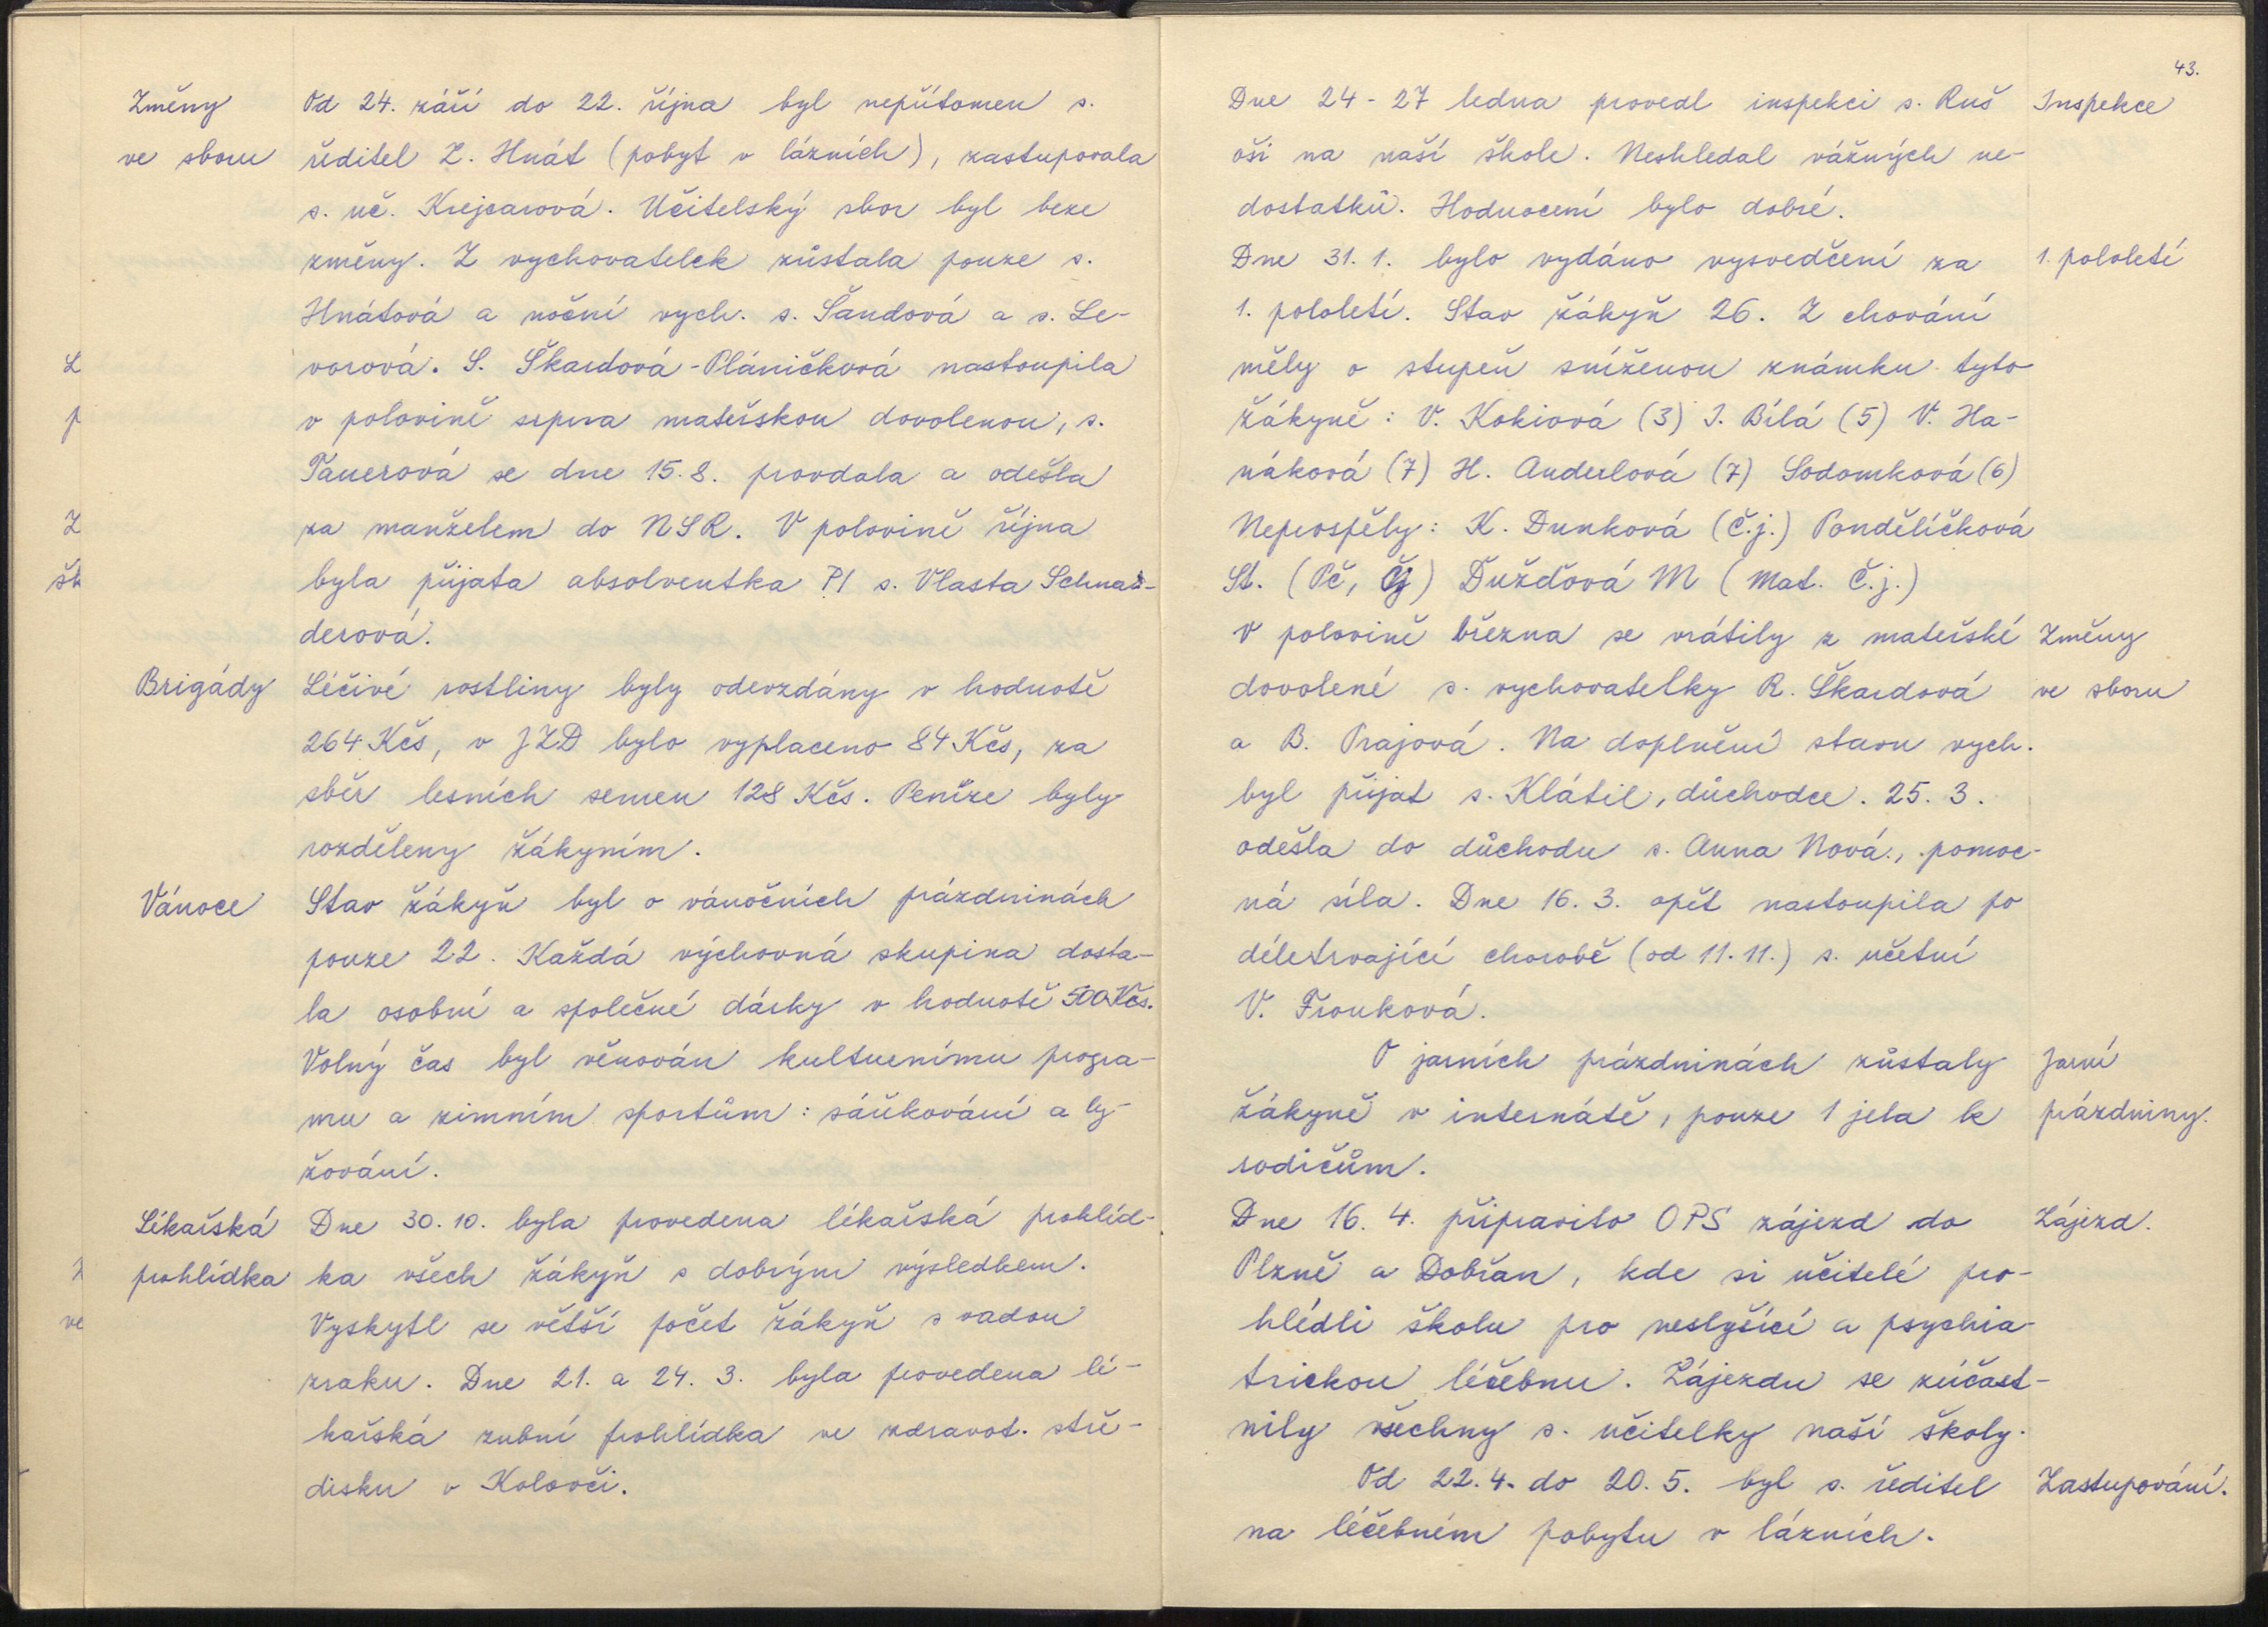 Změny
ve sboru
Od 24. září do 22. října byl nepřítomen s.
ředitel Z. Hnát (pobyt v lázních), zastupovala
s. uč. Krejcarová. Učitelský sbor byl beze
změny. Z vychovatelek zůstala pouze s.
Hnátová a noční vych. s. Šandová a s. Le-
vorová. S. Škardová-Pláničková nastoupila
v polovině srpna mateřskou dovolenou, s.
Tauerová se dne 15.8. provdala a odešla
za manželem do NSR. V polovině října
byla přijata absolventka PI s. Vlasta Schnai-
derová.
Brigády
Léčivé rostliny byly odevzdány v hodnotě
264 Kčs, v JZD bylo vyplaceno 84 Kčs, za
sběr lesních semen 128 Kčs. Peníze byly
rozděleny žákyním.
Vánoce
Stav žákyň byl o vánočních prázdninách
pouze 22. Každá výchovná skupina dosta-
la osobní a společné dárky v hodnotě 500 Kčs.
Volný čas byl věnován kulturnímu progra-
mu a zimním sportům: sáňkování a ly-
žování.
Lékařská
prohlídka
Dne 30.10. byla provedena lékařská prohlíd-
ka všech žákyň s dobrým výsledkem.
Vyskytl se větší počet žákyň s vadou
zraku. Dne 21. a 24. 3. byla provedena lé-
kařská zubní prohlídka ve zdravot. stře-
disku v Kolovči.
43.
Dne 24-27 ledna provedl inspekci s. Ruš
oši na naší škole. Neshledal vážných ne-
dostatků. Hodnocení bylo dobré.
Inspekce
Dne 31. 1. bylo vydáno vysvedčení za
1. pololetí. Stav žákyň 26. Z chování
měly o stupeň sníženou známku tyto
žákyně: V. Kokiová (3) I. Bílá (5) V. Ha-
náková (7) H. Anderlová (7) Sodomková (6)
Neprospěly: K. Dunková (č.j.) Pondělíčková
St. (Pč, Čj) Dužďová M (Mat. Č.j.)
1. pololetí
V polovině března se vrátily z mateřské
dovolené s. vychovatelky R. Škardová
a B. Prajová. Na doplnění stavu vych.
byl přijat s. Klátil, důchodce. 25. 3.
odešla do důchodu s. Anna Nová, pomoc-
ná síla. Dne 16. 3. opět nastoupila po
déletrvající chorobě (od 11.11.) s. účetní
V. Fronková.
Změny
ve sboru
O jarních prázdninách zůstaly
žákyně v internátě, pouze 1 jela k
rodičům.
Jarní
prázdniny.
Dne 16. 4. připravilo OPS zájezd do
Plzně a Dobřan, kde si učitelé pro-
hlédli školu pro neslyšící a psychia-
trickou léčebnu. Zájezdu se zúčast-
nily všechny s. učitelky naší školy.
Zájezd.
Od 22.4. do 20. 5. byl s. ředitel
na léčebném pobytu v lázních.
Zastupování.